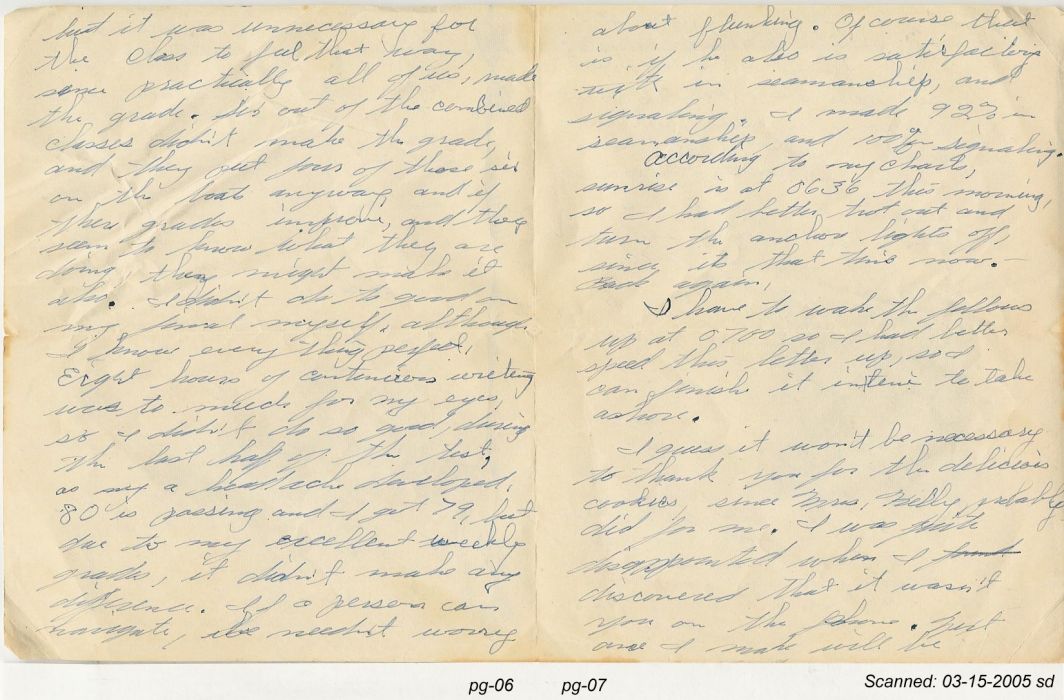 but it was unnecessary for
the class to feel that way,
since practically all of us, made
the grade. Six out of the combined
classes didn't make the grade,
and they put four of those six
on the boats anyway and if
there grades improve, and they
seem to know what they are
doing they might make it
also. I didn't do to good on
my final myself, although
I know every thing perfect.
Eight hours of continious writing
was to much for my eyes,
so I didn't do so good, during
the last half of the test,
as a headache developed.
80 is passing and I got 79, but
due to my excellent weekly
grades, it didn't make any
difference. If a person can
navigate, he needn't worry
about flunking. Of course that
is if he also is satisfactory
in seamanship, and
signaling. I made 92% in
seamanship, and 100% signaling.
According to my charts,
sunrise is at 0636 this morning,
so I had better trot out and
turn the anchor lights off,
since its that time now. —
Back again,
I have to wake the fellows
up at 0700 so I had better
speed this letter up, so I
can finish it in time to take
ashore.
I guess it won't be necessary
to thank you for the delicious
cookies, since Mrs. Kelly probably
did for me. I was quite
disappointed when I found
discovered that it wasn't
you on the phone. Next
one I make will be
pg-06 pg-07 Scanned: 03-15-2005 sd